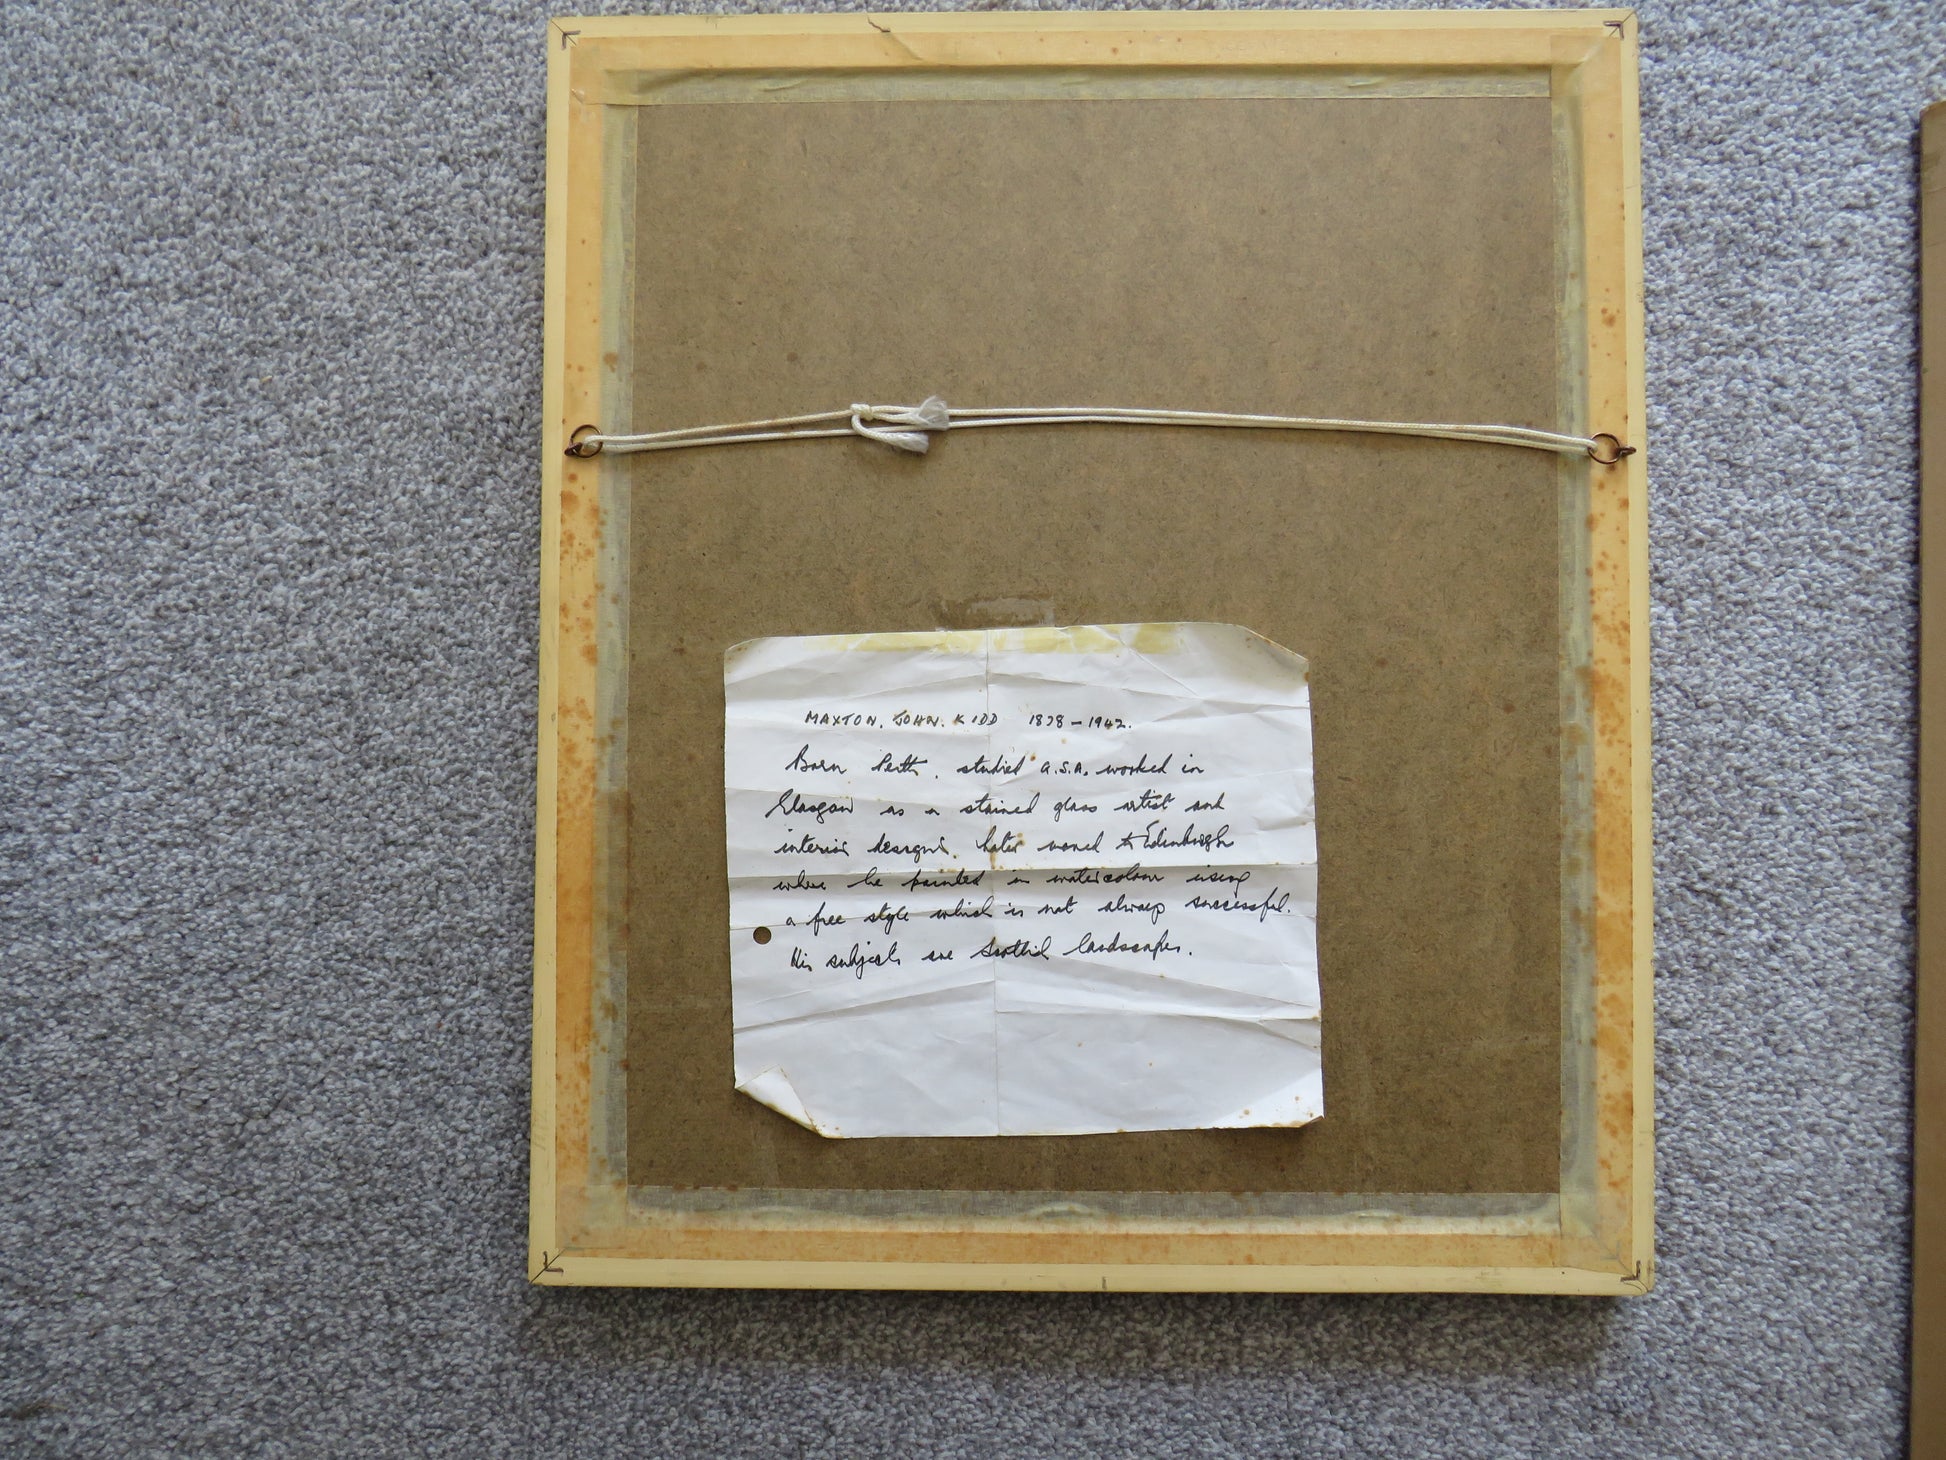 MAXTON. JOHN. KIDD 1878 – 1942.
Born Perth, studied G.S.A. worked in
Glasgow as a stained glass artist and
interior designer. Later moved to Edinburgh
where he painted in watercolour using
a free style which is not always successful.
His subjects are Scottish landscapes.